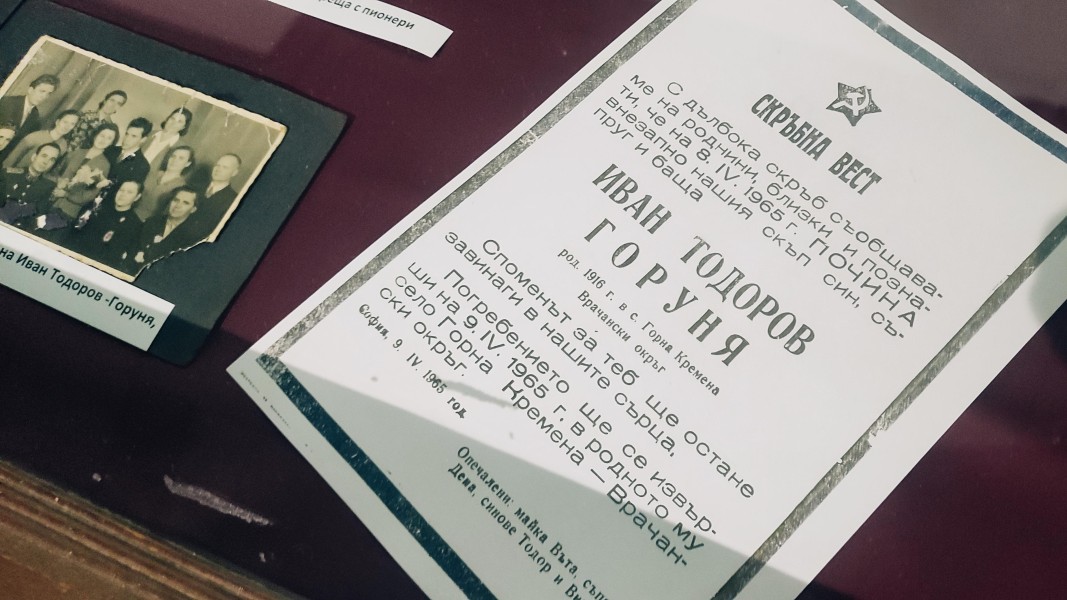 с пионери
на Иван Тодоров -Горуня,
СКРЪБНА ВЕСТ
С дълбока скръб съобщава-
ме на роднини, близки и позна-
ти, че на 8. IV. 1965 г. ПОЧИНА
внезапно нашия скъп син, съ-
пруг и баща
ИВАН ТОДОРОВ
ГОРУНЯ
род. 1916 г. в с. Горна Кремена
Врачански окръг
Споменът за теб ще остане
завинаги в нашите сърца,
Погребението ще се извър-
ши на 9. IV. 1965 г. в родното му
село Горна Кремена — Врачан-
ски окръг.
София, 9. IV. 1965 год.
Опечалени: майка Въта,
Дена, синове Тодор и